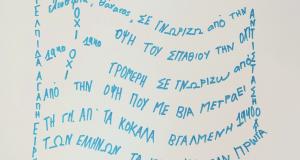 Ελευθερία, θάνατος, ΣΕ ΓΝΩΡΙΖΩ ΑΠΟ ΤΗΝ
ΟΨΗ ΤΟΥ ΣΠΑΘΙΟΥ ΤΗΝ
ΤΡΟΜΕΡΗ ΣΕ ΓΝΩΡΙΖΩ από
ΑΠΟ ΤΗΝ ΟΨΗ ΠΟΥ ΜΕ ΒΙΑ ΜΕΤΡΑΕΙ
ΤΗ ΓΗ. ΑΠ' ΤΑ ΚΟΚΑΛΑ ΒΓΑΛΜΕΝΗ 1940
ΤΩΝ ΕΛΛΗΝΩΝ ΤΑ ΠΡΩΤΑ
ΕΛΠΙΔΑ ΑΓΑΠΗ
ΟΧΙ
1940
ΟΧΙ
1940